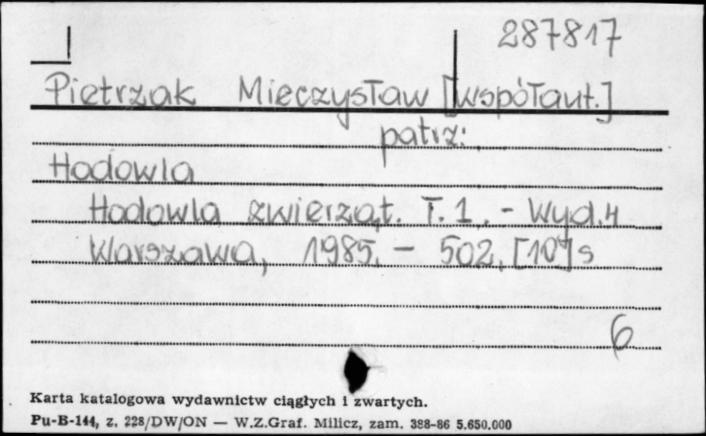 287817
Pietrzak Mieczysław [współaut.]
patrz:
Hodowla
Hodowla zwierząt. T. 1. - Wyd. 4
Warszawa, 1985. - 502, [10] s
6
Karta katalogowa wydawnictw ciągłych i zwartych.
Pu-B-144, z. 228/DW/ON — W.Z.Graf. Milicz, zam. 388-86 5.650.000